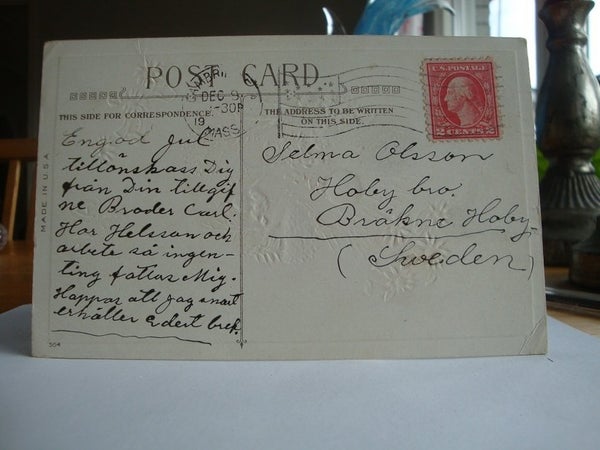 POST CARD
THIS SIDE FOR CORRESPONDENCE.
THE ADDRESS TO BE WRITTEN
ON THIS SIDE.
U.S. POSTAGE
2 CENTS 2
DEC 9
-30P
19
MASS
MADE IN U.S.A
En god Jul
tillönskass Dig
från Din tillgif
ne Broder Carl.
Har Helsan och
arbete så ingen-
ting fattas Mig.
Hoppas att jag snart
erhåller Edert bref.
Selma Olsson
Hoby bro.
Bräkne Hoby
(Sweden)
564